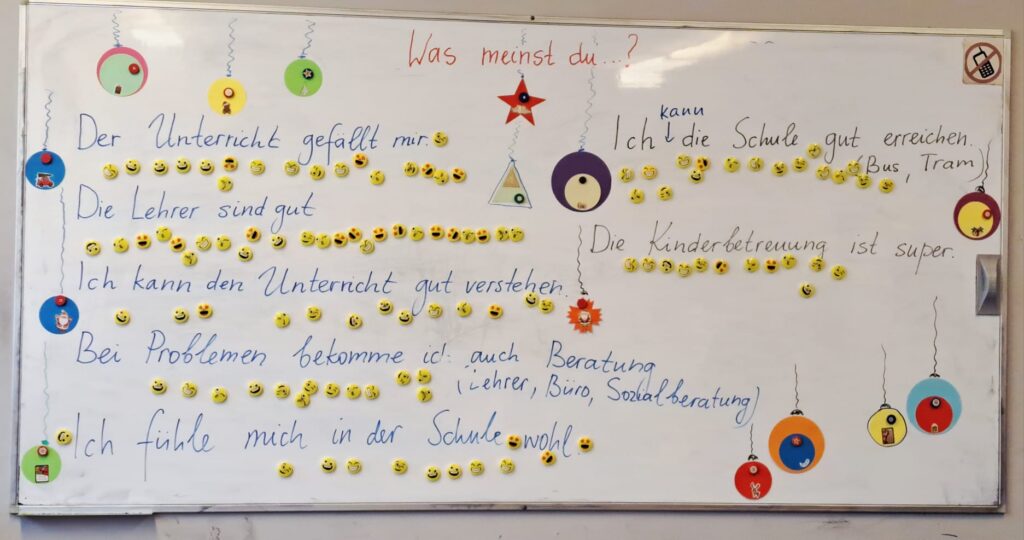 Was meinst du...?
Der Unterricht gefällt mir.
Die Lehrer sind gut
Ich kann den Unterricht gut verstehen.
Bei Problemen bekomme ich auch Beratung
(Lehrer, Büro, Sozialberatung)
Ich fühle mich in der Schule wohl.
kann
Ich die Schule gut erreichen.
(Bus, Tram)
Die Kinderbetreuung ist super.